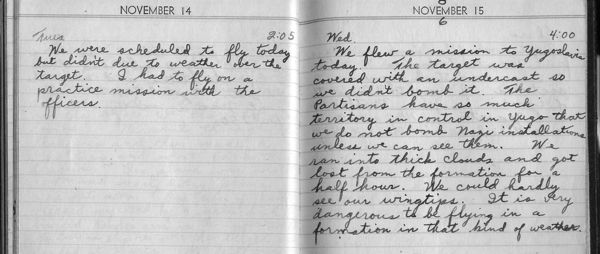 NOVEMBER 14
Tues. 2:05
We were scheduled to fly today
but didn't due to weather over the
target. I had to fly on a
practice mission with the
officers.
NOVEMBER 15
6
Wed. 4:00
We flew a mission to Yugoslavia
today. The target was
covered with an undercast so
we didn't bomb it. The
Partisans have so much
territory in control in Yugo that
we do not bomb Nazi installations
unless we can see them. We
ran into thick clouds and got
lost from the formation for a
half hour. We could hardly
see our wingtips. It is very
dangerous to be flying in a
formation in that kind of weather.